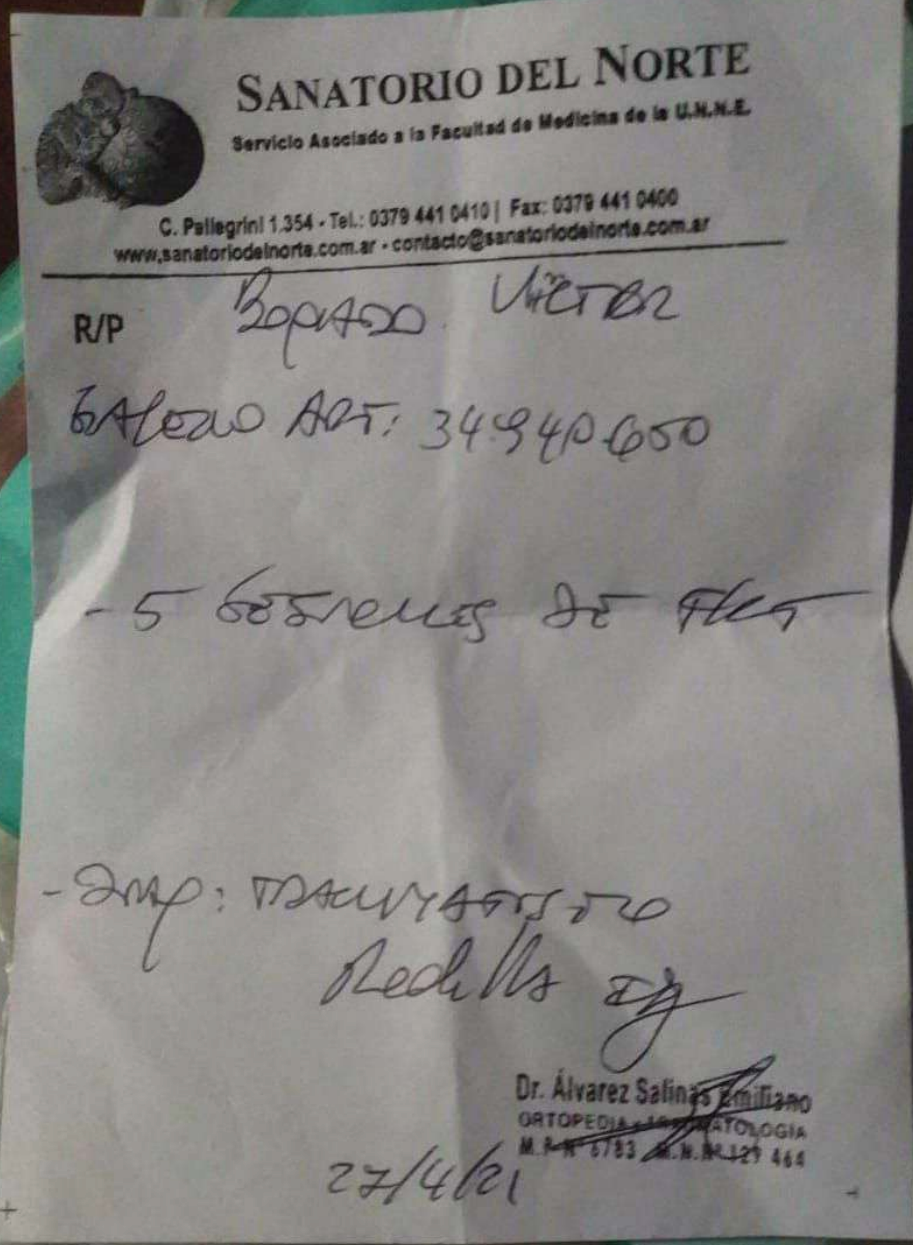 SANATORIO DEL NORTE
Servicio Asociado a la Facultad de Medicina de la U.N.N.E.
C. Pellegrini 1.354 - Tel.: 0379 441 0410 | Fax: 0379 441 0400
www.sanatoriodelnorte.com.ar - contacto@sanatoriodelnorte.com.ar
R/P Boquado Victor
Galeno ART: 34.940.650
- 5 Sesiones de FKT
- Diag: Traumatismo
Rodilla Izq
Dr. Álvarez Salinas Emiliano
ORTOPEDIA - TRAUMATOLOGIA
M.P. Nº 6783 M.N. Nº 129 464
27/4/21